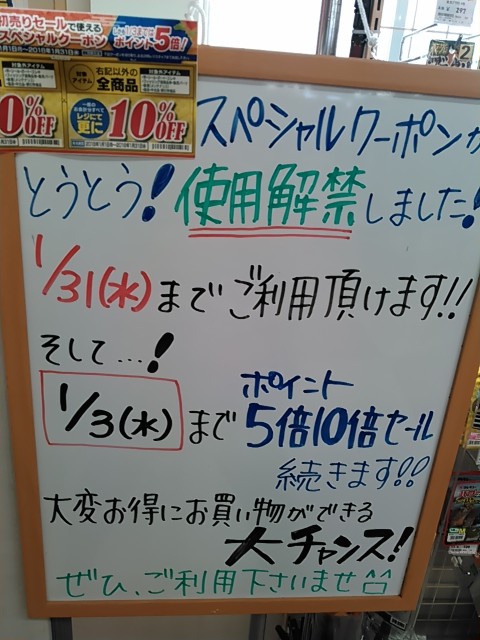 初売りセールで使える
スペシャルクーポン
ポイント5倍!
対象アイテム
0%OFF
対象アイテム
右記以外の
全商品
レジにて
更に
10%OFF
スペシャルクーポンが
とうとう!使用解禁しました!
1/31(水)までご利用頂けます!!
そして…!
1/3(水)まで
ポイント
5倍10倍セール
続きます!!
大変お得にお買い物ができる
大チャンス!
ぜひ、ご利用下さいませ^^